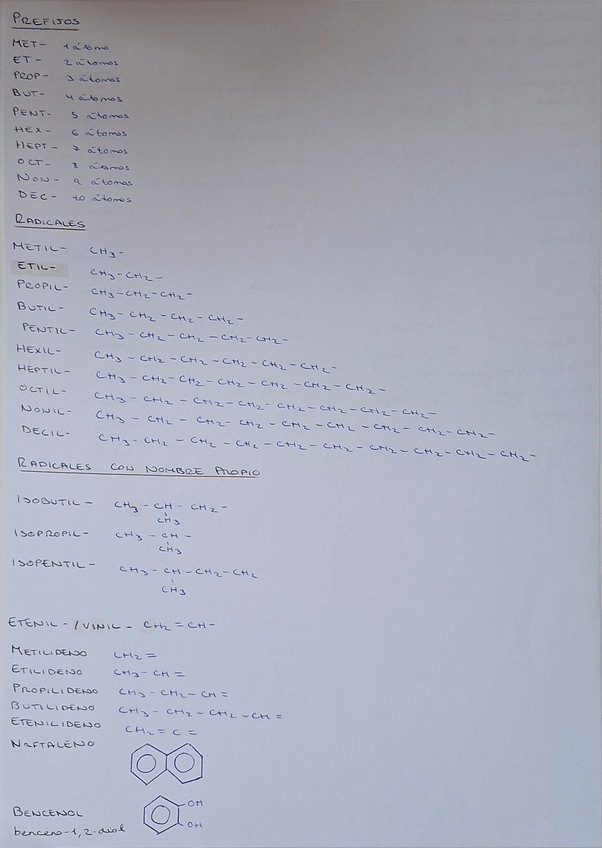 PREFIJOS
MET- 1 átomo
ET- 2 átomos
PROP- 3 átomos
BUT- 4 átomos
PENT- 5 átomos
HEX- 6 átomos
HEPT- 7 átomos
OCT- 8 átomos
NON- 9 átomos
DEC- 10 átomos
RADICALES
METIL- CH3-
ETIL- CH3-CH2-
PROPIL- CH3-CH2-CH2-
BUTIL- CH3-CH2-CH2-CH2-
PENTIL- CH3-CH2-CH2-CH2-CH2-
HEXIL- CH3-CH2-CH2-CH2-CH2-CH2-
HEPTIL- CH3-CH2-CH2-CH2-CH2-CH2-CH2-
OCTIL- CH3-CH2-CH2-CH2-CH2-CH2-CH2-CH2-
NONIL- CH3-CH2-CH2-CH2-CH2-CH2-CH2-CH2-CH2-
DECIL- CH3-CH2-CH2-CH2-CH2-CH2-CH2-CH2-CH2-CH2-
RADICALES CON NOMBRE PROPIO
ISOBUTIL- CH3-CH-CH2-
CH3
ISOPROPIL- CH3-CH-
CH3
ISOPENTIL- CH3-CH-CH2-CH2
CH3
ETENIL-/VINIL- CH2=CH-
METILIDENO CH2=
ETILIDENO CH3-CH=
PROPILIDENO CH3-CH2-CH=
BUTILIDENO CH3-CH2-CH2-CH=
ETENILIDENO CH2=C=
NAFTALENO
BENCENOL OH
benceno-1,2-diol OH